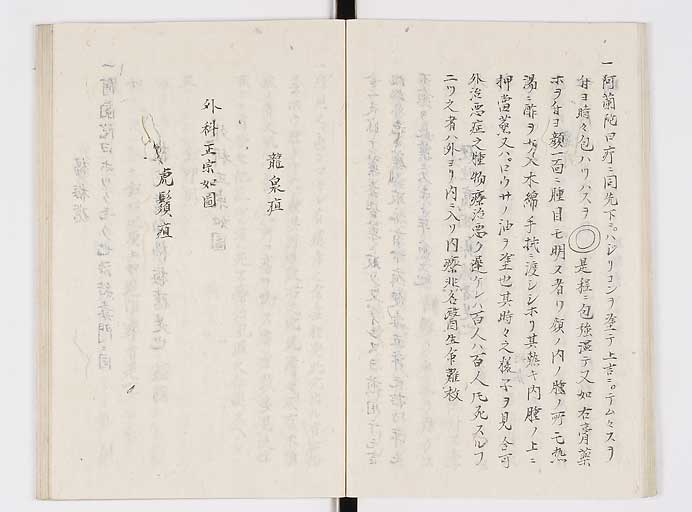 一阿蘭陀曰疔ニ同先下ニハシリコンヲ塗テ上吉ニテムクスヲ
付ヨ時々包ハリハスヲ◎是程ニ包強湿テ又如右膏薬
ホヲ付ヨ顔一面ニ腫目モ明ス者ワ顔ノ内ノ腫ノ所モ熱
湯ニ酢ヲ加ヘ木綿手拭ニ浸シシホリ其蒸キ内腫ノ上ニ
押當蒸又ハロウサノ油ヲ塗也其時々之様子ヲ見合可
外治悪症之腫物療治悪ク遅ケレハ百人ハ百人凡死スルフ
二ツ之者ハ外ヨリ内ニ入リ内療非名醫生命難救
龍泉疽
外科正宗如圖
虎鬚疽